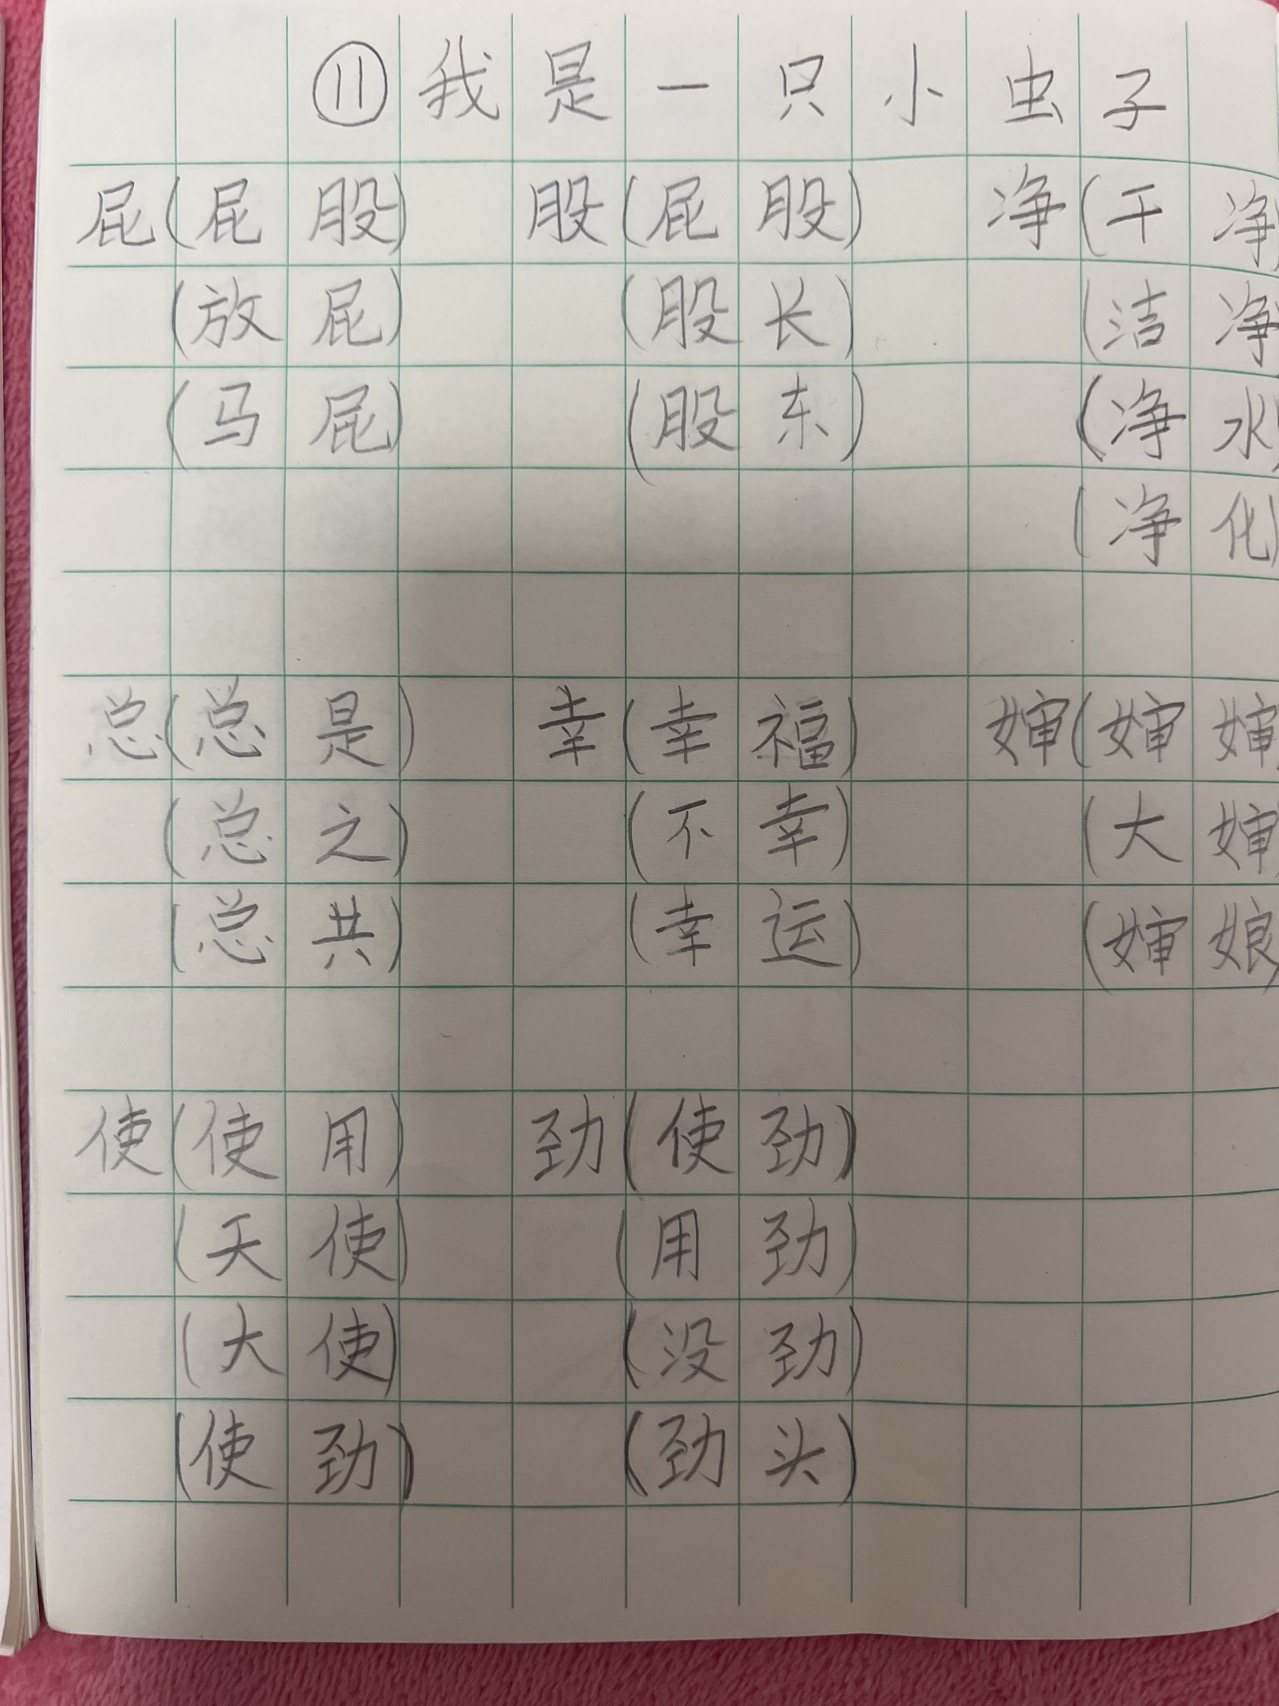 ⑪我是一只小虫子
屁(屁股) 股(屁股) 净(干净)
(放屁) (股长) (洁净)
(马屁) (股东) (净水)
(净化)
总(总是) 幸(幸福) 婶(婶婶)
(总之) (不幸) (大婶)
(总共) (幸运) (婶娘)
使(使用) 劲(使劲)
(天使) (用劲)
(大使) (没劲)
(使劲) (劲头)